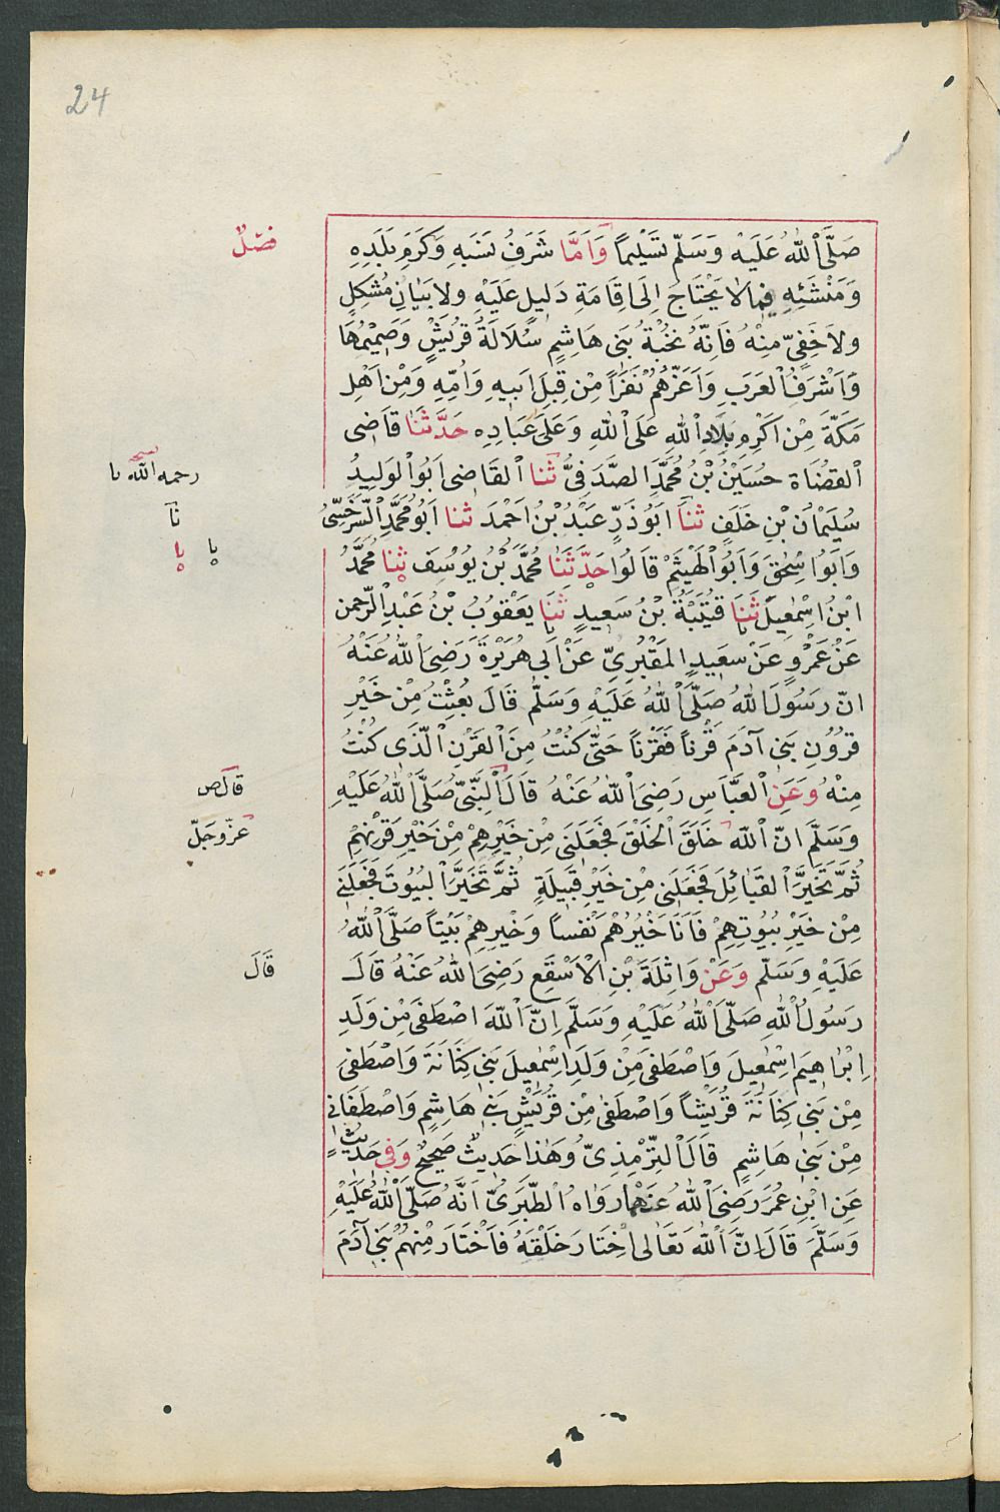 24
فَصْلٌ
صَلَّى اللّٰهُ عَلَيْهِ وَسَلَّمَ تَسْلِيمًا وَاَمَّا شَرَفُ نَسَبِهِ وَكَرَمِ بَلَدِهِ
وَمَنْشَئِهِ فِمَا لَا يَحْتَاجَ اِلَى اِقَامَةِ دَلِيلٍ عَلَيْهِ وَلَا بَيَانِ مُشْكِلٍ
وَلَا خَفِيٍّ مِنْهُ فَاِنَّهُ نُخْبَةُ بَنِى هَاشِمٍ سُلَالَةُ قُرَيْشٍ وَصَمِيْمُهَا
وَاَشْرَفُ الْعَرَبِ وَاَعَزُّهُمْ نَفَرًا مِنْ قِبَلِ اَبِيهِ وَاُمِّهِ وَمِنْ اَهْلِ
مَكَّةَ مِنْ اَكْرَمِ بِلَادِ اللّٰهِ عَلَى اللّٰهِ وَعَلَى عِبَادِهِ حَدَّثَنَا قَاضِى
الْقُضَاةِ حُسَيْنُ بْنُ مُحَمَّدِ الصَّدَفِىُّ ثنا الْقَاضِى اَبُو الْوَلِيدِ
رحمه الله نا
سُلَيْمٰانُ بْنِ خَلَفٍ ثَنَا اَبُو ذَرٍّ عَبْدُ بْنُ اَحْمَدَ ثنا اَبُو مُحَمَّدِ السَّرَخْسِىُّ
نَا
وَاَبُوا سْحٰقَ وَاَبُو الْهَيْثَمِ قَالُوا حَدَّثَنَا مُحَمَّدُ بْنُ يُوسُفَ ثنا مُحَمَّدُ
ابْنُ اِسْمٰعِيلَ ثَنَا قُتَيْبَةُ بْنُ سَعِيدٍ ثنَا يَعْقُوبُ بْنُ عَبْدِ الرَّحْمٰن
عَنْ عَمْرٍو عَنْ سَعِيدٍ الْمَقْبُرِيِّ عَنْ اَبِى هُرَيْرَةَ رَضِىَ اللّٰهُ عَنْهُ
اِنَّ رَسُولَ اللّٰهُ صَلَّى اللّٰهُ عَلَيْهِ وَسَلَّمَ قَالَ بُعِثْتُ مِنْ خَيْرِ
قُرُونِ بَنِى آدَمَ قَرْناً فَقَرْنَاً حَتَّى كُنْتُ مِنَ الْقَرْنِ الَّذِى كُنْتُ
مِنْهُ وَعَنِ الْعَبَّاسِ رَضِىَ اللّٰهُ عَنْهُ قَالَ النَّبِىُّ صَلَّى اللّٰهُ عَلَيْهِ
قال ص
وَسَلَّمَ اِنَّ اللّٰهَ خَلَقَ الْخَلْقَ فَجَعَلَنِى مِنْ خَيْرِهِمْ مِنْ خَيْرِ قَرْنِهِمْ
عَزَّوَجَلَّ
ثُمَّ تَخَيَّرَ الْقَبَائِلَ فَجَعَلَنِى مِنْ خَيْرِ قَبِيلَةٍ ثُمَّ تَخَيَّرَ الْبُيُوتَ فَجَعَلَنِى
مِنْ خَيْرِ بُيُوتِهِمْ فَاَنَا خَيْرُهُمْ نَفْساً وَخَيْرِهِمْ بَيْتًا صَلَّى اللّٰهُ
عَلَيْهِ وَسَلَّمَ وَعَنْ وَاثِلَةَ بْنِ الْاَسْقَعِ رَضِىَ اللّٰهُ عَنْهُ قَالَ
قَالَ
رَسُولُ اللّٰهِ صَلَّى اللّٰهُ عَلَيْهِ وَسَلَّمَ اِنَّ اللّٰهَ اصْطَفَى مِنْ وَلَدِ
اِبْرَاهِيمَ اِسْمٰعِيلَ وَاصْطَفَى مِنْ وَلَدِ اِسْمٰعِيلَ بَنِى كِنَانَةَ وَاصْطَفَى
مِنْ بَنِى كِنَانَةَ قُرَيْشًا وَاصْطَفَى مِنْ قُرَيْشٍ بَنِى هَاشِمٍ وَاصْطَفَانِى
مِنْ بَنِى هَاشِمٍ قَالَ التِّرْمِذِىُّ وَهٰذَا حَدِيثٌ صَحِيحٌ وَفِى حَدِيثٍ
عَنِ ابْنِ عُمَرَ رَضِىَ اللّٰهُ عَنْهُمَا رَوَاهُ الطَّبَرِىُّ اَنَّهُ صَلَّى اللّٰهُ عَلَيْهِ
وَسَلَّمَ قَالَ اِنَّ اللّٰهَ تَعَالَى اخْتَارَ خَلْقَهُ فَاخْتَارَ مِنْهُمْ بَنِى آدَمَ